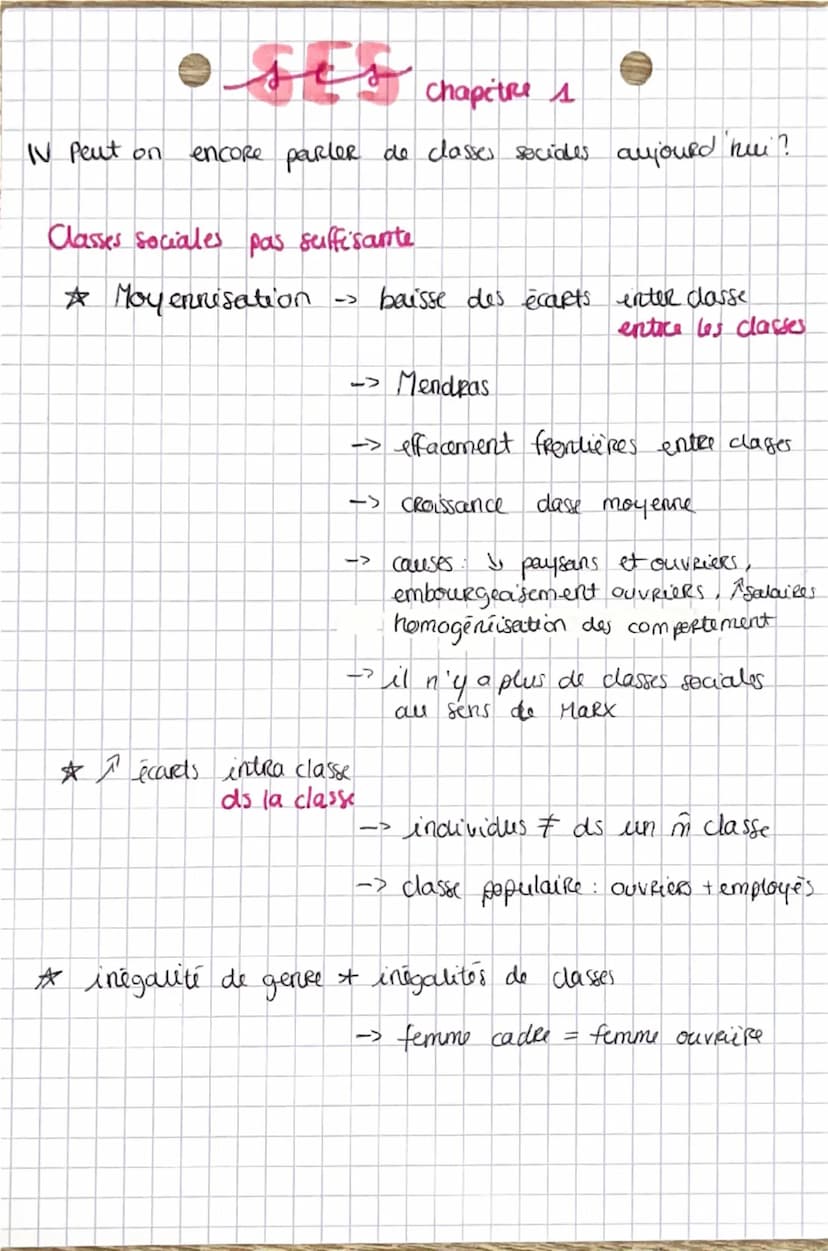 ses
SES
Chapitre 1
IV Peut on encore parler de classes sociales aujourd'hui?
Classes sociales pas suffisante
☆ Moyennisation -> baisse des écarts inter classe
entre les classes
-> Mendras
-> effacement frontières entre classes
-> croissance classe moyenne
-> causes: ↘ paysans et ouvriers,
embourgeaisement ouvriers, ↗salaires
homogénéisation des comportement
-> il n'y a plus de classes sociales
au sens de Marx
☆ ↗ écarts intra classe
ds la classe
-> individus ≠ ds un m̂ classe
-> classe populaire: ouvriers + employés
☆ inégalité de genre + inégalités de classes
-> femme cadre = femme ouvrière